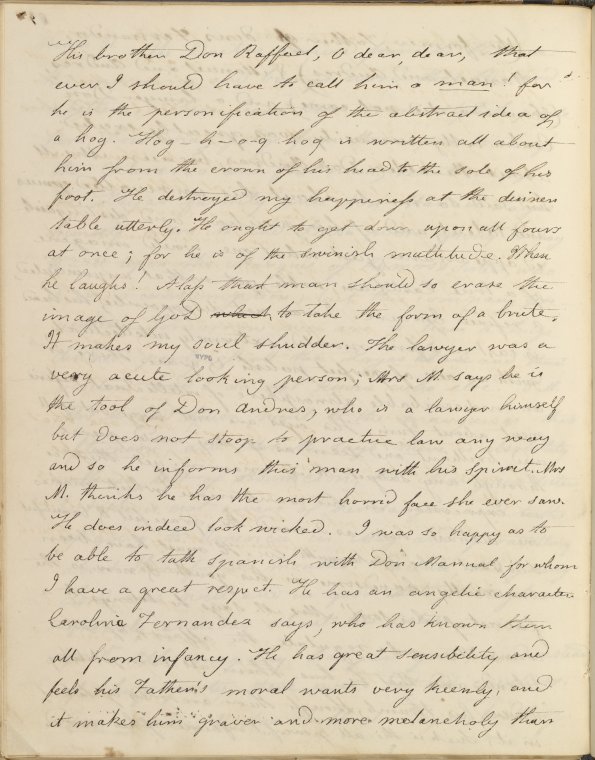 His brother Don Raffael, O dear, dear, that
ever I should have to call him a man! for
he is the personification of the abstract idea of
a hog. Hog - h-o-g hog is written all about
him from the crown of his head to the sole of his
foot. He destroyed my happiness at the dinner
table utterly. He ought to get down upon all fours
at once; for he is of the swinish multitude. When
he laughs! Alass that man should so erase the
image of God which to take the form of a brute.
It makes my soul shudder. The lawyer was a
very acute looking person; Mrs M. says he is
the tool of Don Andres, who is a lawyer himself
but does not stoop to practice law any way
and so he informs this man with his spirit. Mrs
M. thinks he has the most horrid face she ever saw.
He does indeed look wicked. I was so happy as to
be able to talk Spanish with Don Manual for whom
I have a great respect. He has an angelic character
Caroline Fernandez says, who has known them
all from infancy. He has great sensibility and
feels his Father's moral wants very keenly, and
it makes him graver and more melancholy than